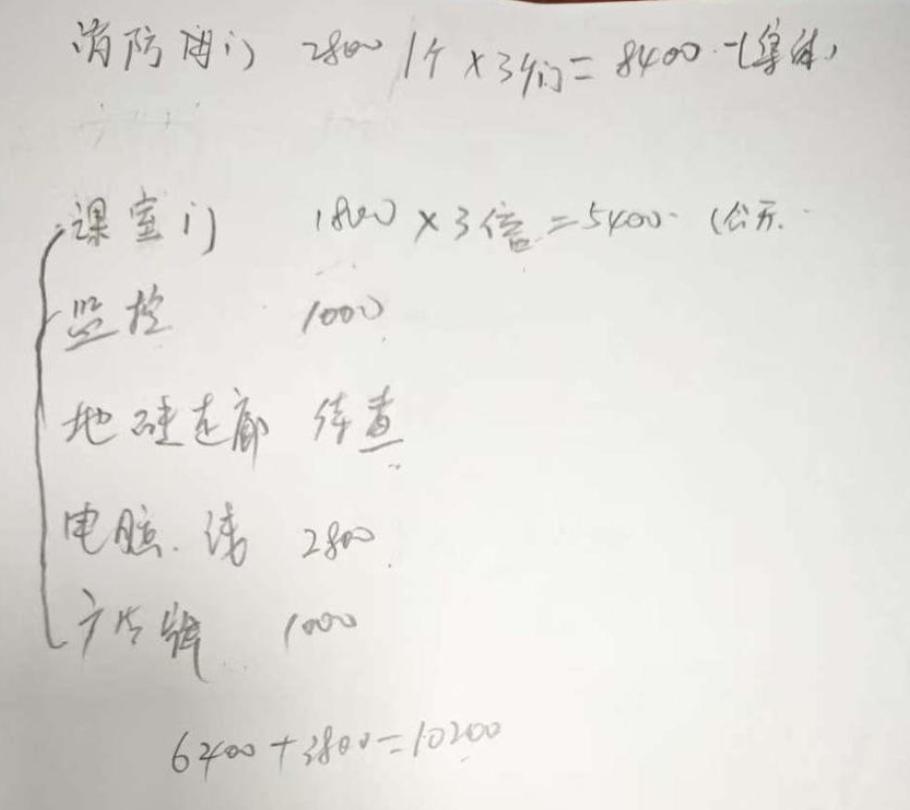 消防闸门 2800 1个×3个门=8400.-(集体)
课室门 1800×3倍=5400.
监控 1000
地砖走廊 待查
电脑.线 2800
广告 1000
6400+3800=10200